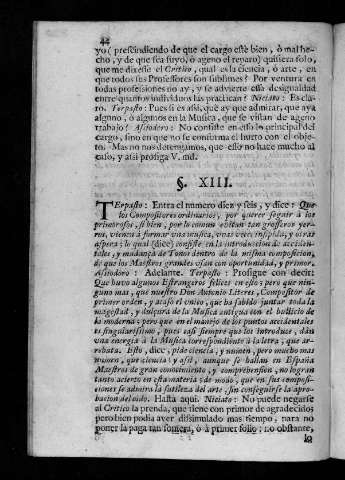 44
yo (prescindiendo de que el cargo estè bien, ò mal he-
cho, y de que sea suyo, ò ageno el reparo) quisiera solo,
que me dixesse el Critico, qual es la ciencia, ò arte, en
que todos sus Professores son sublimes? Por ventura en
todas professiones no ay, y se advierte essa desigualdad
entre quantos individuos las practican? Niciato: Es cla-
ro. Terpasto: Pues si es assi, què ay que admirar, que aya
alguno, ò algunos en la Musica, que se vistan de ageno
trabajo? Assiodoro: No consiste en esso lo principal del
cargo, sino en que no se continua el hurto con el obje-
to. Mas no nos detengamos, que esso no hace mucho al
caso, y assi prosiga V. md.
§. XIII.
TErpasto: Entra el numero diez y seis, y dice: Que
los Compositores ordinarios, por querer seguir à los
primorosos, si bien, por lo comun evitan tan grosseros yer-
ros, vienen à formar una musica, unas veces insipida, y otras
aspera; lo qual (dice) consiste en la introduccion de acciden-
tales, y mudanza de Tonos dentro de la misma composicion,
de que los Maestros grandes usan con oportunidad, y primor.
Assiodoro: Adelante. Terpasto: Prosigue con decir:
Que huvo algunos Estrangeros felices en esso; pero que nin-
guno mas, que nuestro Don Antonio Literes, Compositor de
primer orden, y acaso el unico, que ha sabido juntar toda la
magestad, y dulzura de la Musica antigua con el bullicio de
la moderna; pero que en el manejo de los puntos accidentales
es singularissimo, pues casi siempre que los introduce, dàn
una energìa à la Musica correspondiente à la letra, que ar-
rebata. Esto, dice, pide ciencia, y numen, pero mucho mas
numen, que ciencia, y assi, aunque se hallan en España
Maestros de gran conocimiento, y comprehension, no logran
tanto acierto en esta materia, de modo, que en sus composi-
ciones se admira la sutileza del arte, sin conseguirse la apro-
bacion del oido. Hasta aqui. Niciato: No puede negarse
al Critico la prenda, que tiene con primor de agradecido;
pero bien podia aver dissimulado mas tiempo, para no
poner la paga tan somera, ò à primer folio: no obstante,
lo